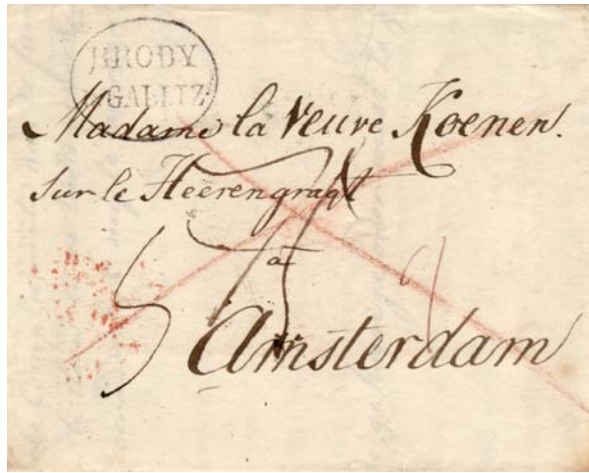 BRODY
GALITZ
Madame la Veuve Koenen.
sur le Heerengragt
a
Amsterdam